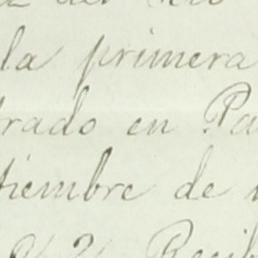 la primera
trado en Pa
tiembre de
Recib